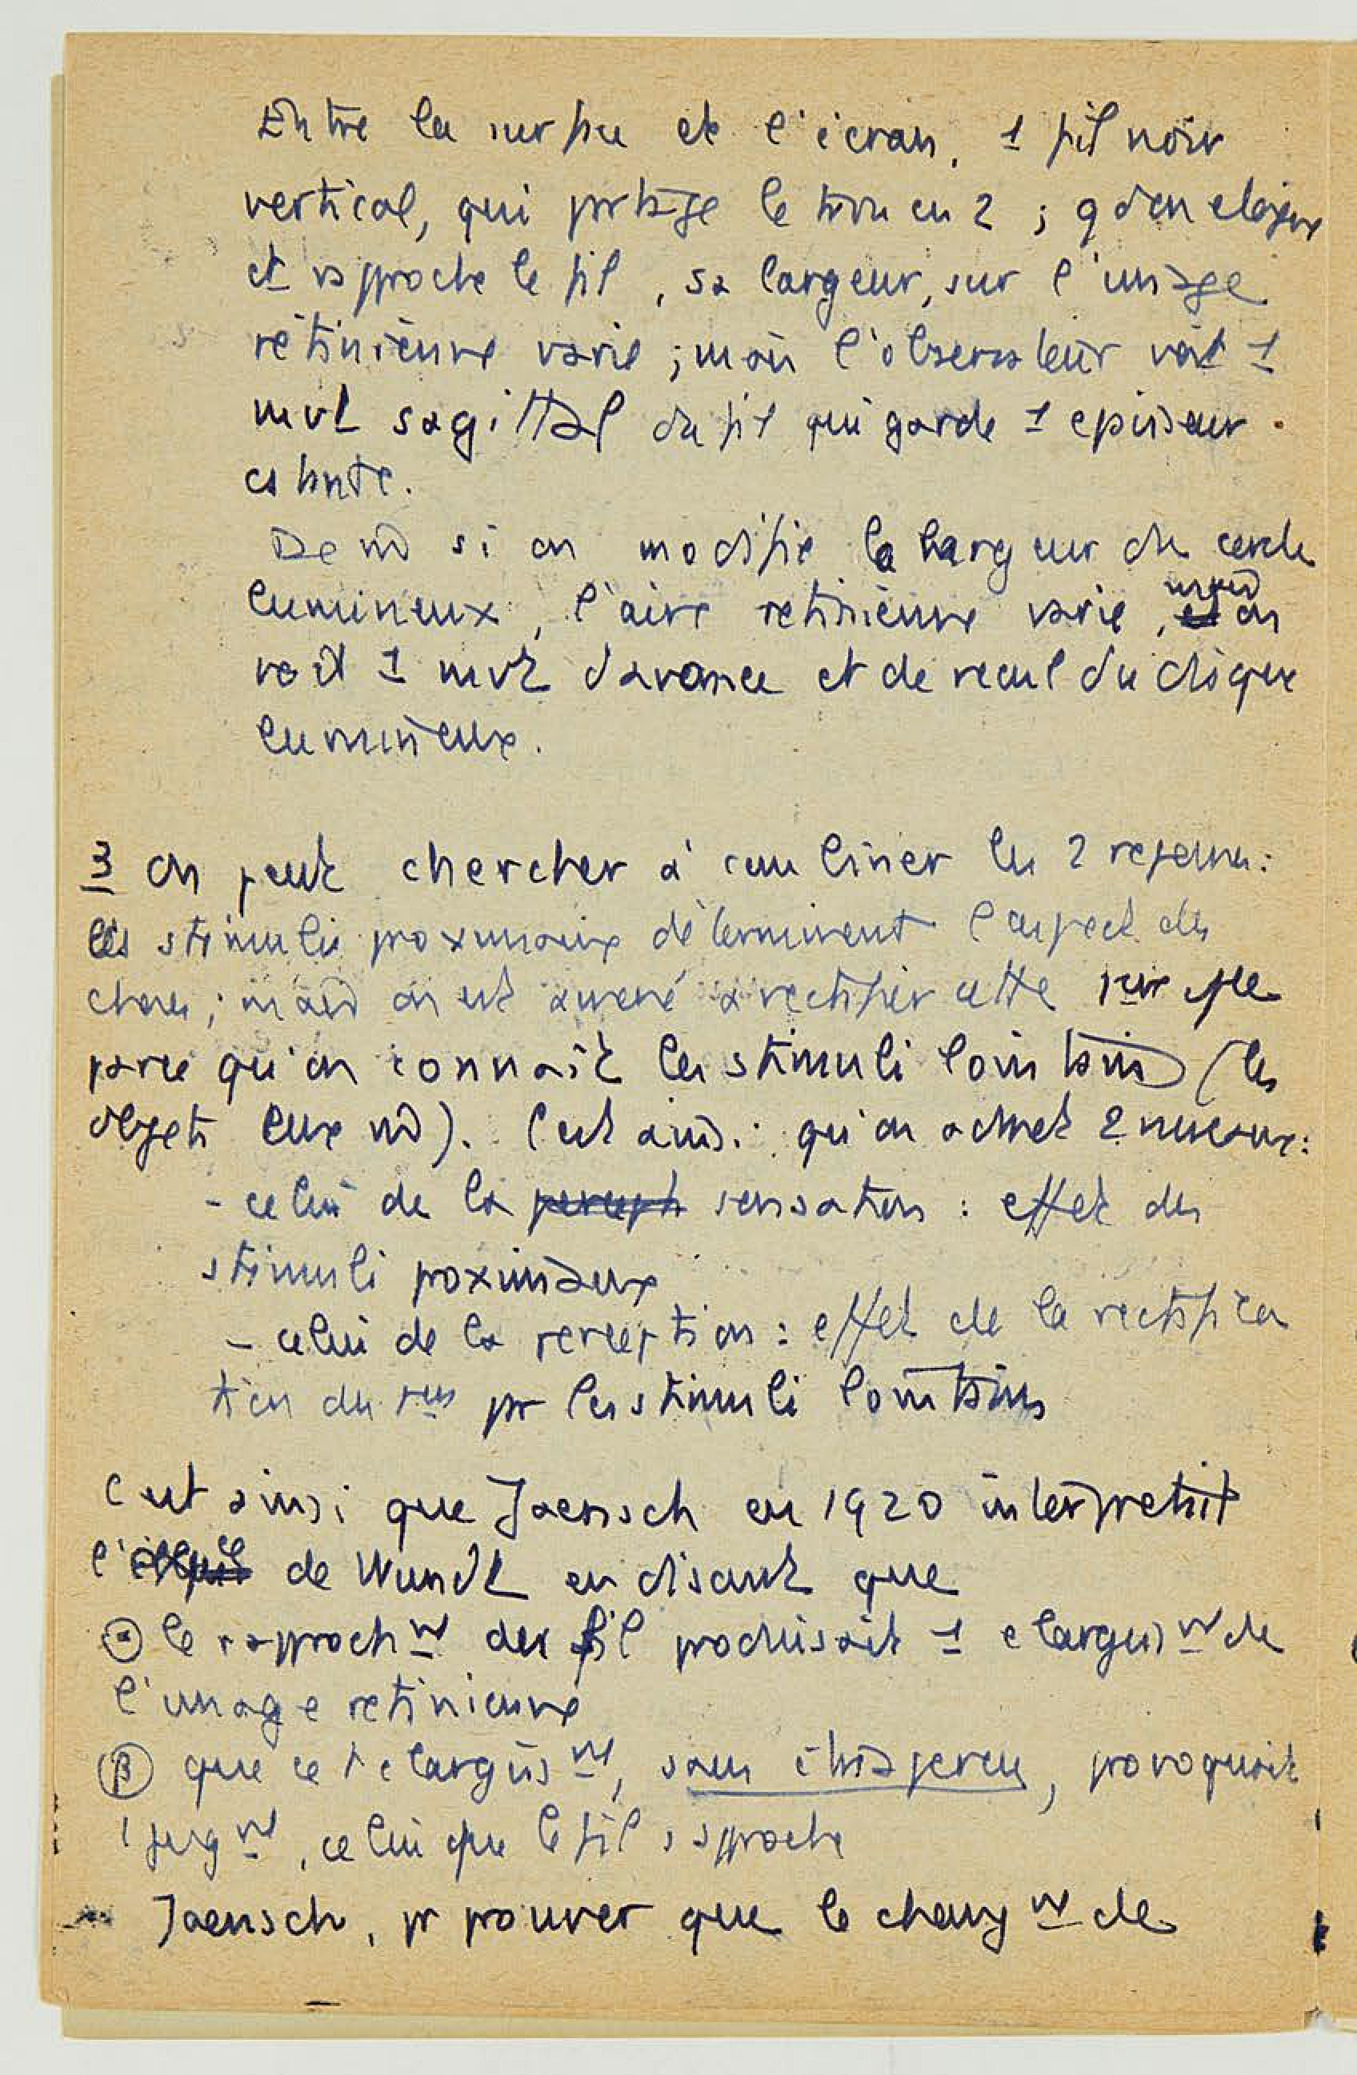 Entre la surface et l'écran, 1 fil noir
vertical, qui partage le trou en 2 ; qd on eloigne
et rapproche le fil, sa largeur, sur l'image
rétinienne varie ; mais l'observateur voit 1
mvt sagittal du fil qui garde 1 epaisseur
cstante.
De m̂ si on modifie la largeur du cercle
lumineux, l'aire retinienne varie, on
voit 1 mvt d'avance et de recul du disque
lumineux.
3 On peut chercher à combiner les 2 reponses :
les stimulis proximaux déterminent l'aspect des
choses ; mais on est amené a rectifier cette 1ere
parce qu'on connait les stimuli lointains (les
objets eux m̂). C'est ainsi qu'on admet 2 niveaux :
- celui de la percept sensation : effet des
stimuli proximaux
- celui de la perception : effet de la rectifica
tion du par les stimuli lointains
C'est ainsi que Jaensch en 1920 interpretait
de Wundt en disant que
α le rapprochmt du fil produisait 1 elargissmt de
l'image retinienne
β que cet elargissmt, sans être aperçu, provoquait
1 jugmt, celui que le fil s'approche
Jaensch, pr prouver que le changmt de